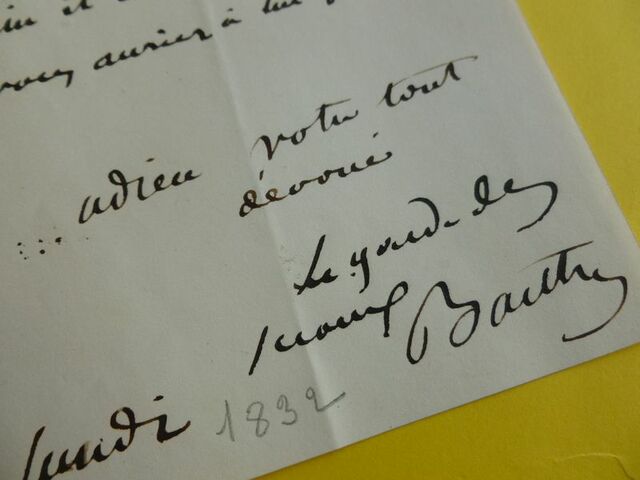 vous auriez à lui
adieu votre tout
dévoué
le garde des
sceaux Barthe
lundi 1832